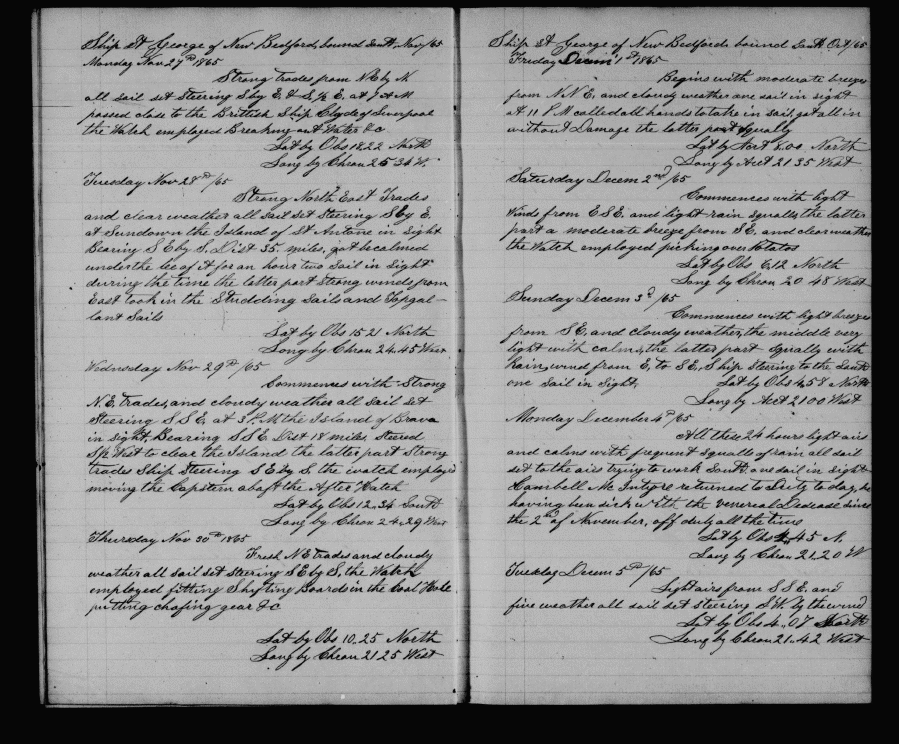 Ship St George of New Bedford, bound South, Nov/65
Monday Nov 27th 1865
Strong trades from NE by N
all sail set Steering S by E. & S ½ E. at 7 A M
passed close to the British Ship Clyde of Liverpool
the Watch employed Breaking out Water &c
Lat by Obs 18.22 North
Long by Chron 25 34 W.
Tuesday Nov 28th/65
Strong North East Trades
and clear weather all Sail Set Steering S by E.
at Sundown the Island of St Antone in Sight
Bearing S E by S. Dist 35. miles, got becalmed
under the lee of it for an hour two Sail in Sight
during the time the latter part Strong winds from
East took in the Studding Sails and Topgal-
lant Sails
Lat by Obs 15 21 North
Long by Chron 24.45 West
Wednesday Nov 29th/65
Commences with Strong
N.E. trades, and cloudy weather all Sail Set
Steering S S E, at 3 P.M. the Island of Brava
in Sight, Bearing S S E. Dist 18 miles Steered
S ½ West to clear the Island the latter part Strong
trades Ship Steering S E by S. the watch employed
moving the Capstern abaft the After Hatch
Lat by Obs 12.34 South
Long by Chron 24.29 West
Thursday Nov 30th 1865
Fresh N E trades and cloudy
weather all Sail set Steering S E by S, the Watch
employed fitting Shifting Boards in the Coal Hole
putting chafing gear &c
Lat by Obs 10.25 North
Long by Chron 21 25 West
Ship St George of New Bedford bound South Oct/65
Friday Decem 1st 1865
Begins with moderate breezes
from N.N E. and cloudy weather one sail in sight
at 11 P M called all hands to take in sail, got all in
without Damage the latter part Squally
Lat by Acct 8.00 North
Long by Acct 21 35 West
Saturday Decem 2nd/65
Commences with light
winds from E S E. and light rain Squalls, the latter
part a moderate breeze from S E. and clear weather
the Watch employed picking over Potatos
Lat by Obs 6,12 North
Long by Chron 20 48 West
Sunday Decem 3d/65
Commences with light breezes
from S E. and cloudy weather, the middle very
light with calms, the latter part Squally with
Rain, wind from E, to S E, Ship Steering to the South
one Sail in Sight, Lat by Obs 4,58 North
Long by Acct 21 00 West
Monday December 4th/65
All these 24 hours light airs
and calms with frequent Squalls of rain all sail
set to the airs trying to work South, one sail in sight
Cambell Mc Intyre returned to Duty to day, he
having been Sick with the venereal Desease since
the 2nd of November, off duty all the time
Lat by Obs 4, 45 N.
Long by Chron 21.20 W
Tuesday Decem 5th/65
Light airs from S S E. and
fine weather all sail set steering S W. by the wind
Lat by Obs 4.07 North
Long by Chron 21.42 West